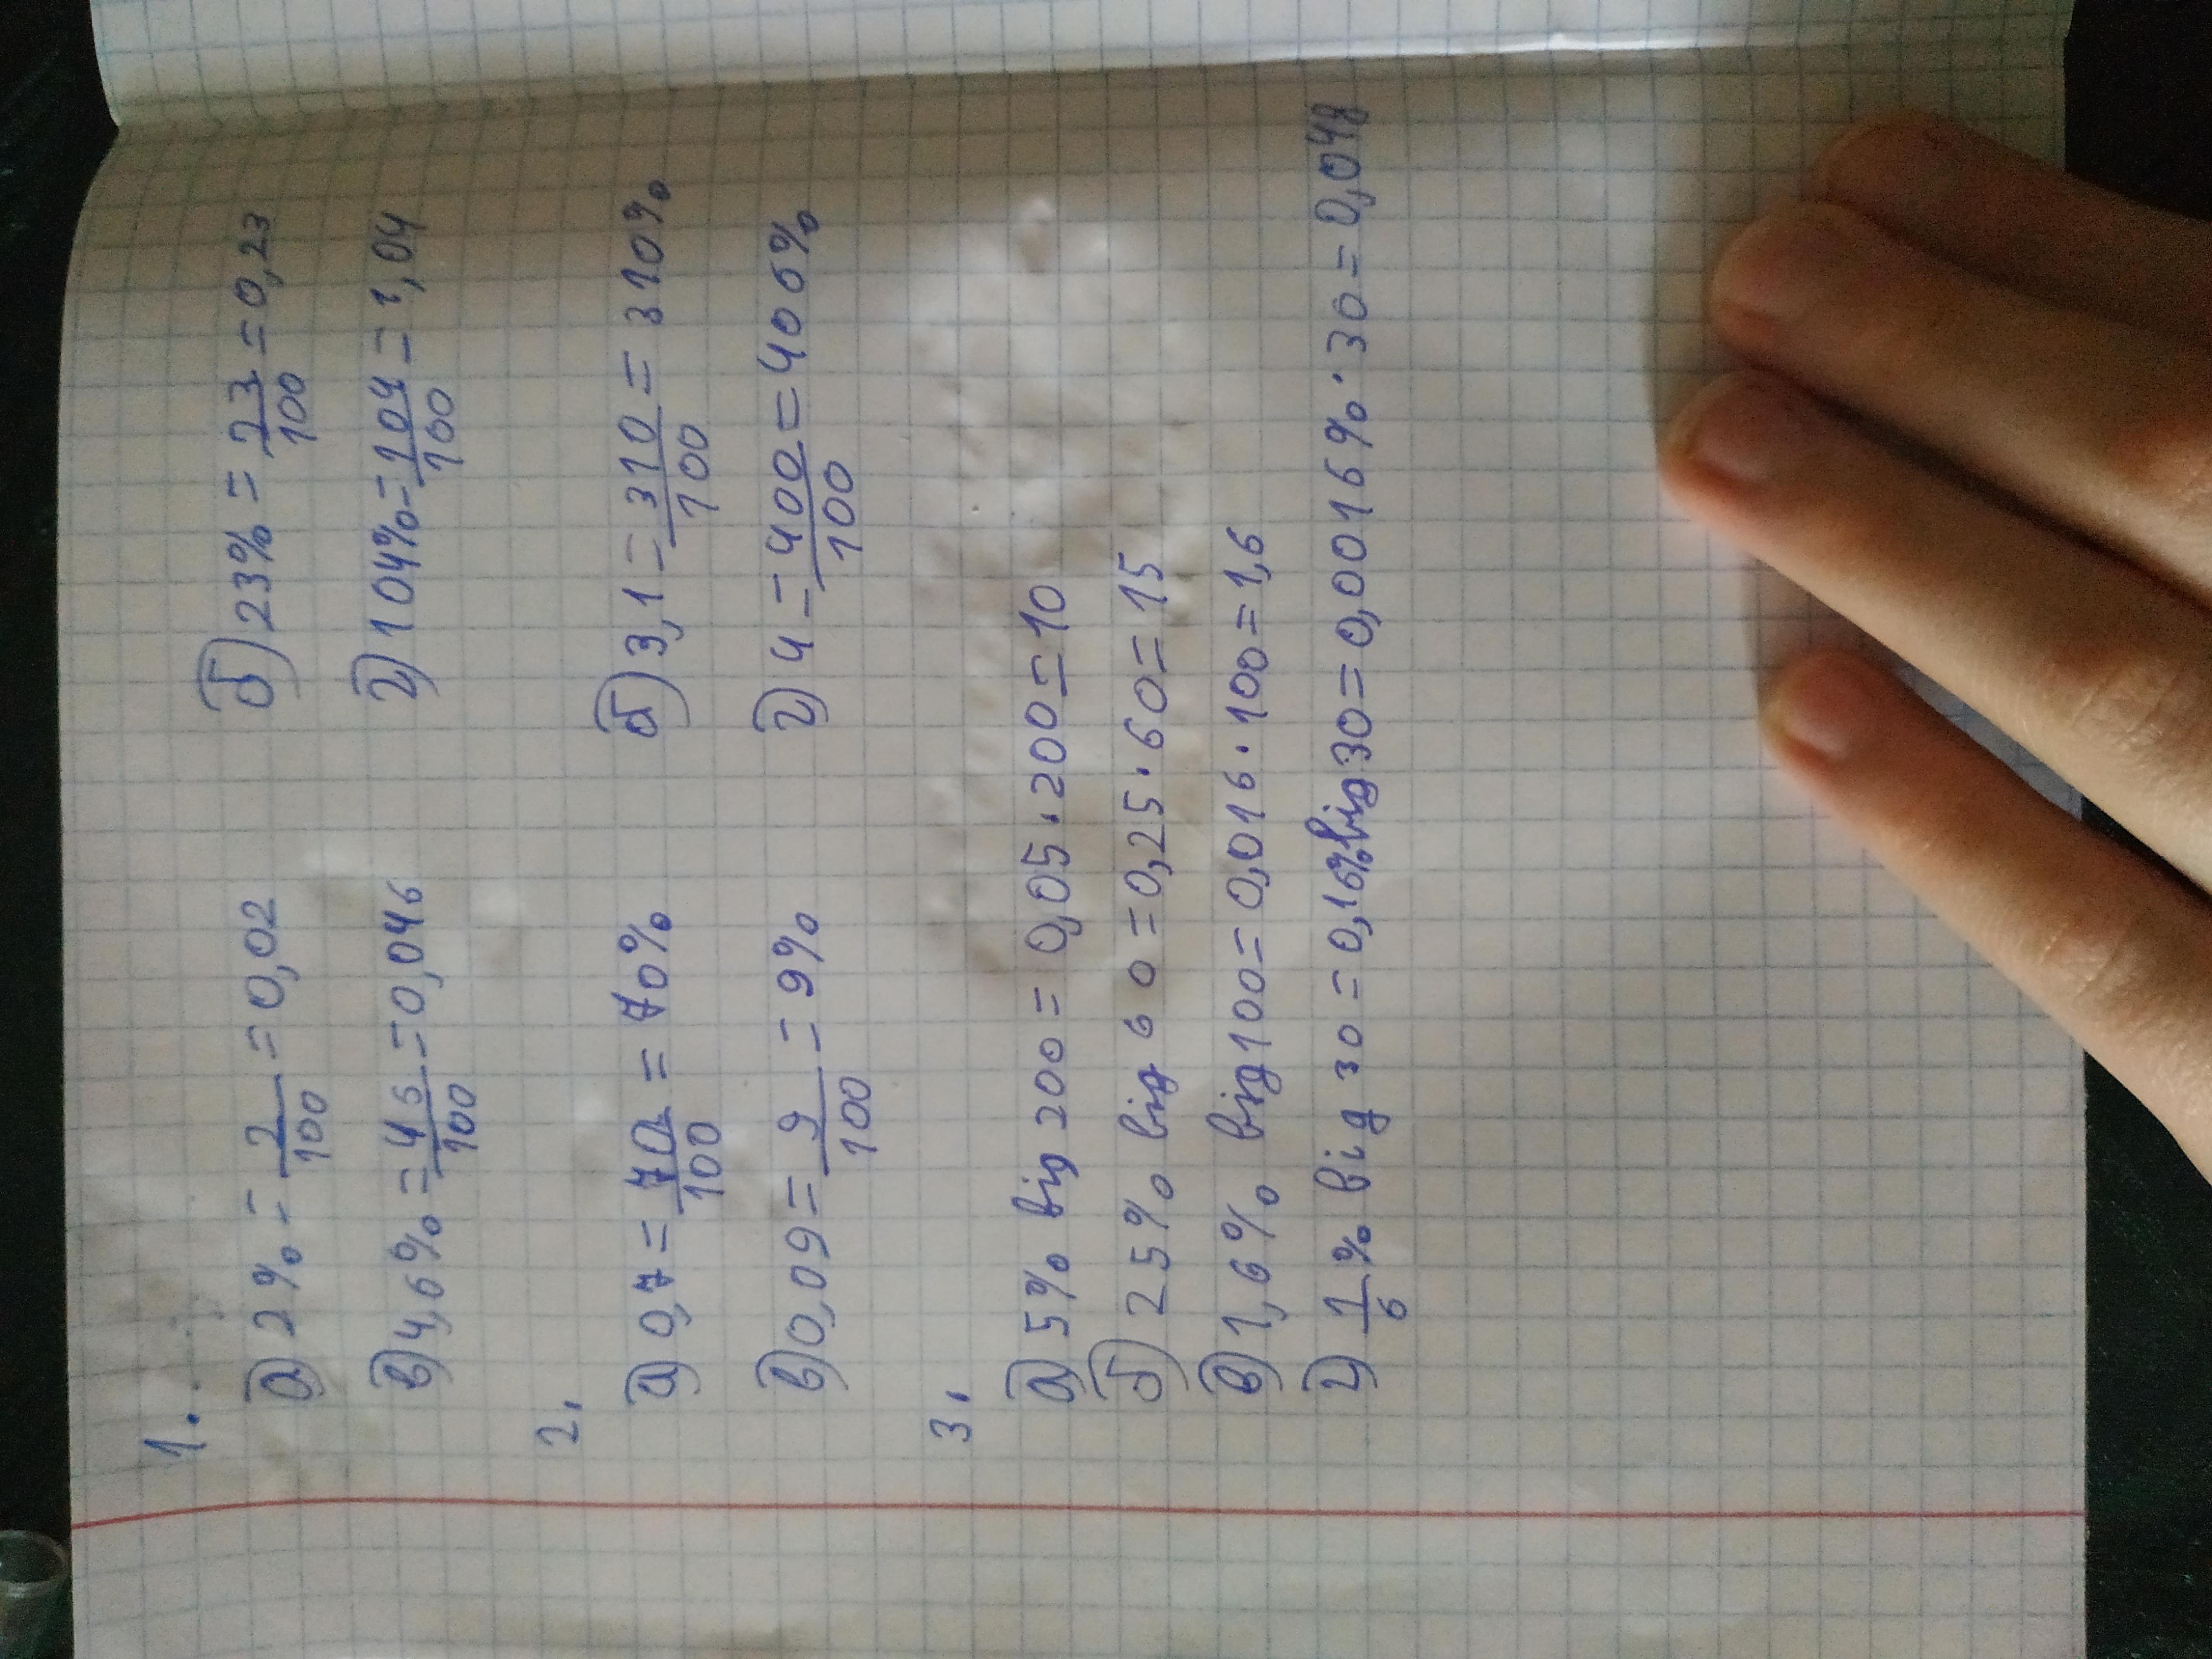 1.
а) 2% = 2/100 = 0,02 б) 23% = 23/100 = 0,23
в) 4,6% = 4 6/100 = 0,046 г) 104% = 104/100 = 1,04
2.
а) 0,7 = 70/100 = 70% б) 3,1 = 310/100 = 310%
в) 0,09 = 9/100 = 9% г) 4 = 400/100 = 400%
3.
а) 5% від 200 = 0,05 · 200 = 10
б) 25% від 60 = 0,25 · 60 = 15
в) 1,6% від 100 = 0,016 · 100 = 1,6
г) 1/6% від 30 = 0,16% від 30 = 0,0016% · 30 = 0,048